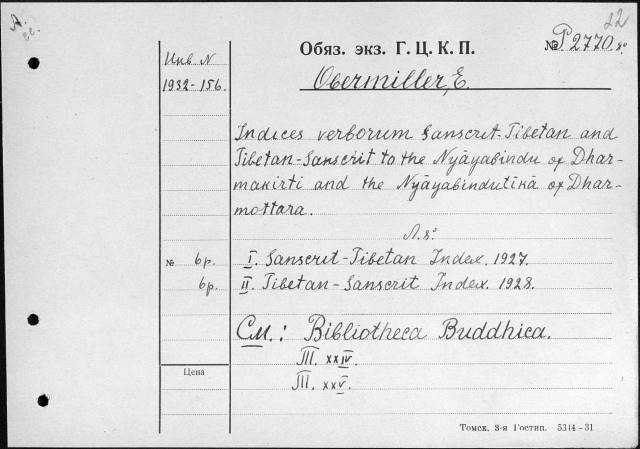 22
Обяз. экз. Г. Ц. К. П.
№ P 2770. 8°
Инв N
1932-156.
Obermiller, E.
Indices verborum Sanscrit-Tibetan and
Tibetan-Sanscrit to the Nyāyabindu of Dhar-
makirti and the Nyāyabindutikā of Dhar-
mottara.
Л. 8°
№ 6р. I. Sanscrit-Tibetan Index. 1927.
6р. II. Tibetan-Sanscrit Index. 1928.
См.: Bibliotheca Buddhica.
Ш. XXIV.
Ш. XXV.
Цена
Томск, 3-я Гостип. 5314-31